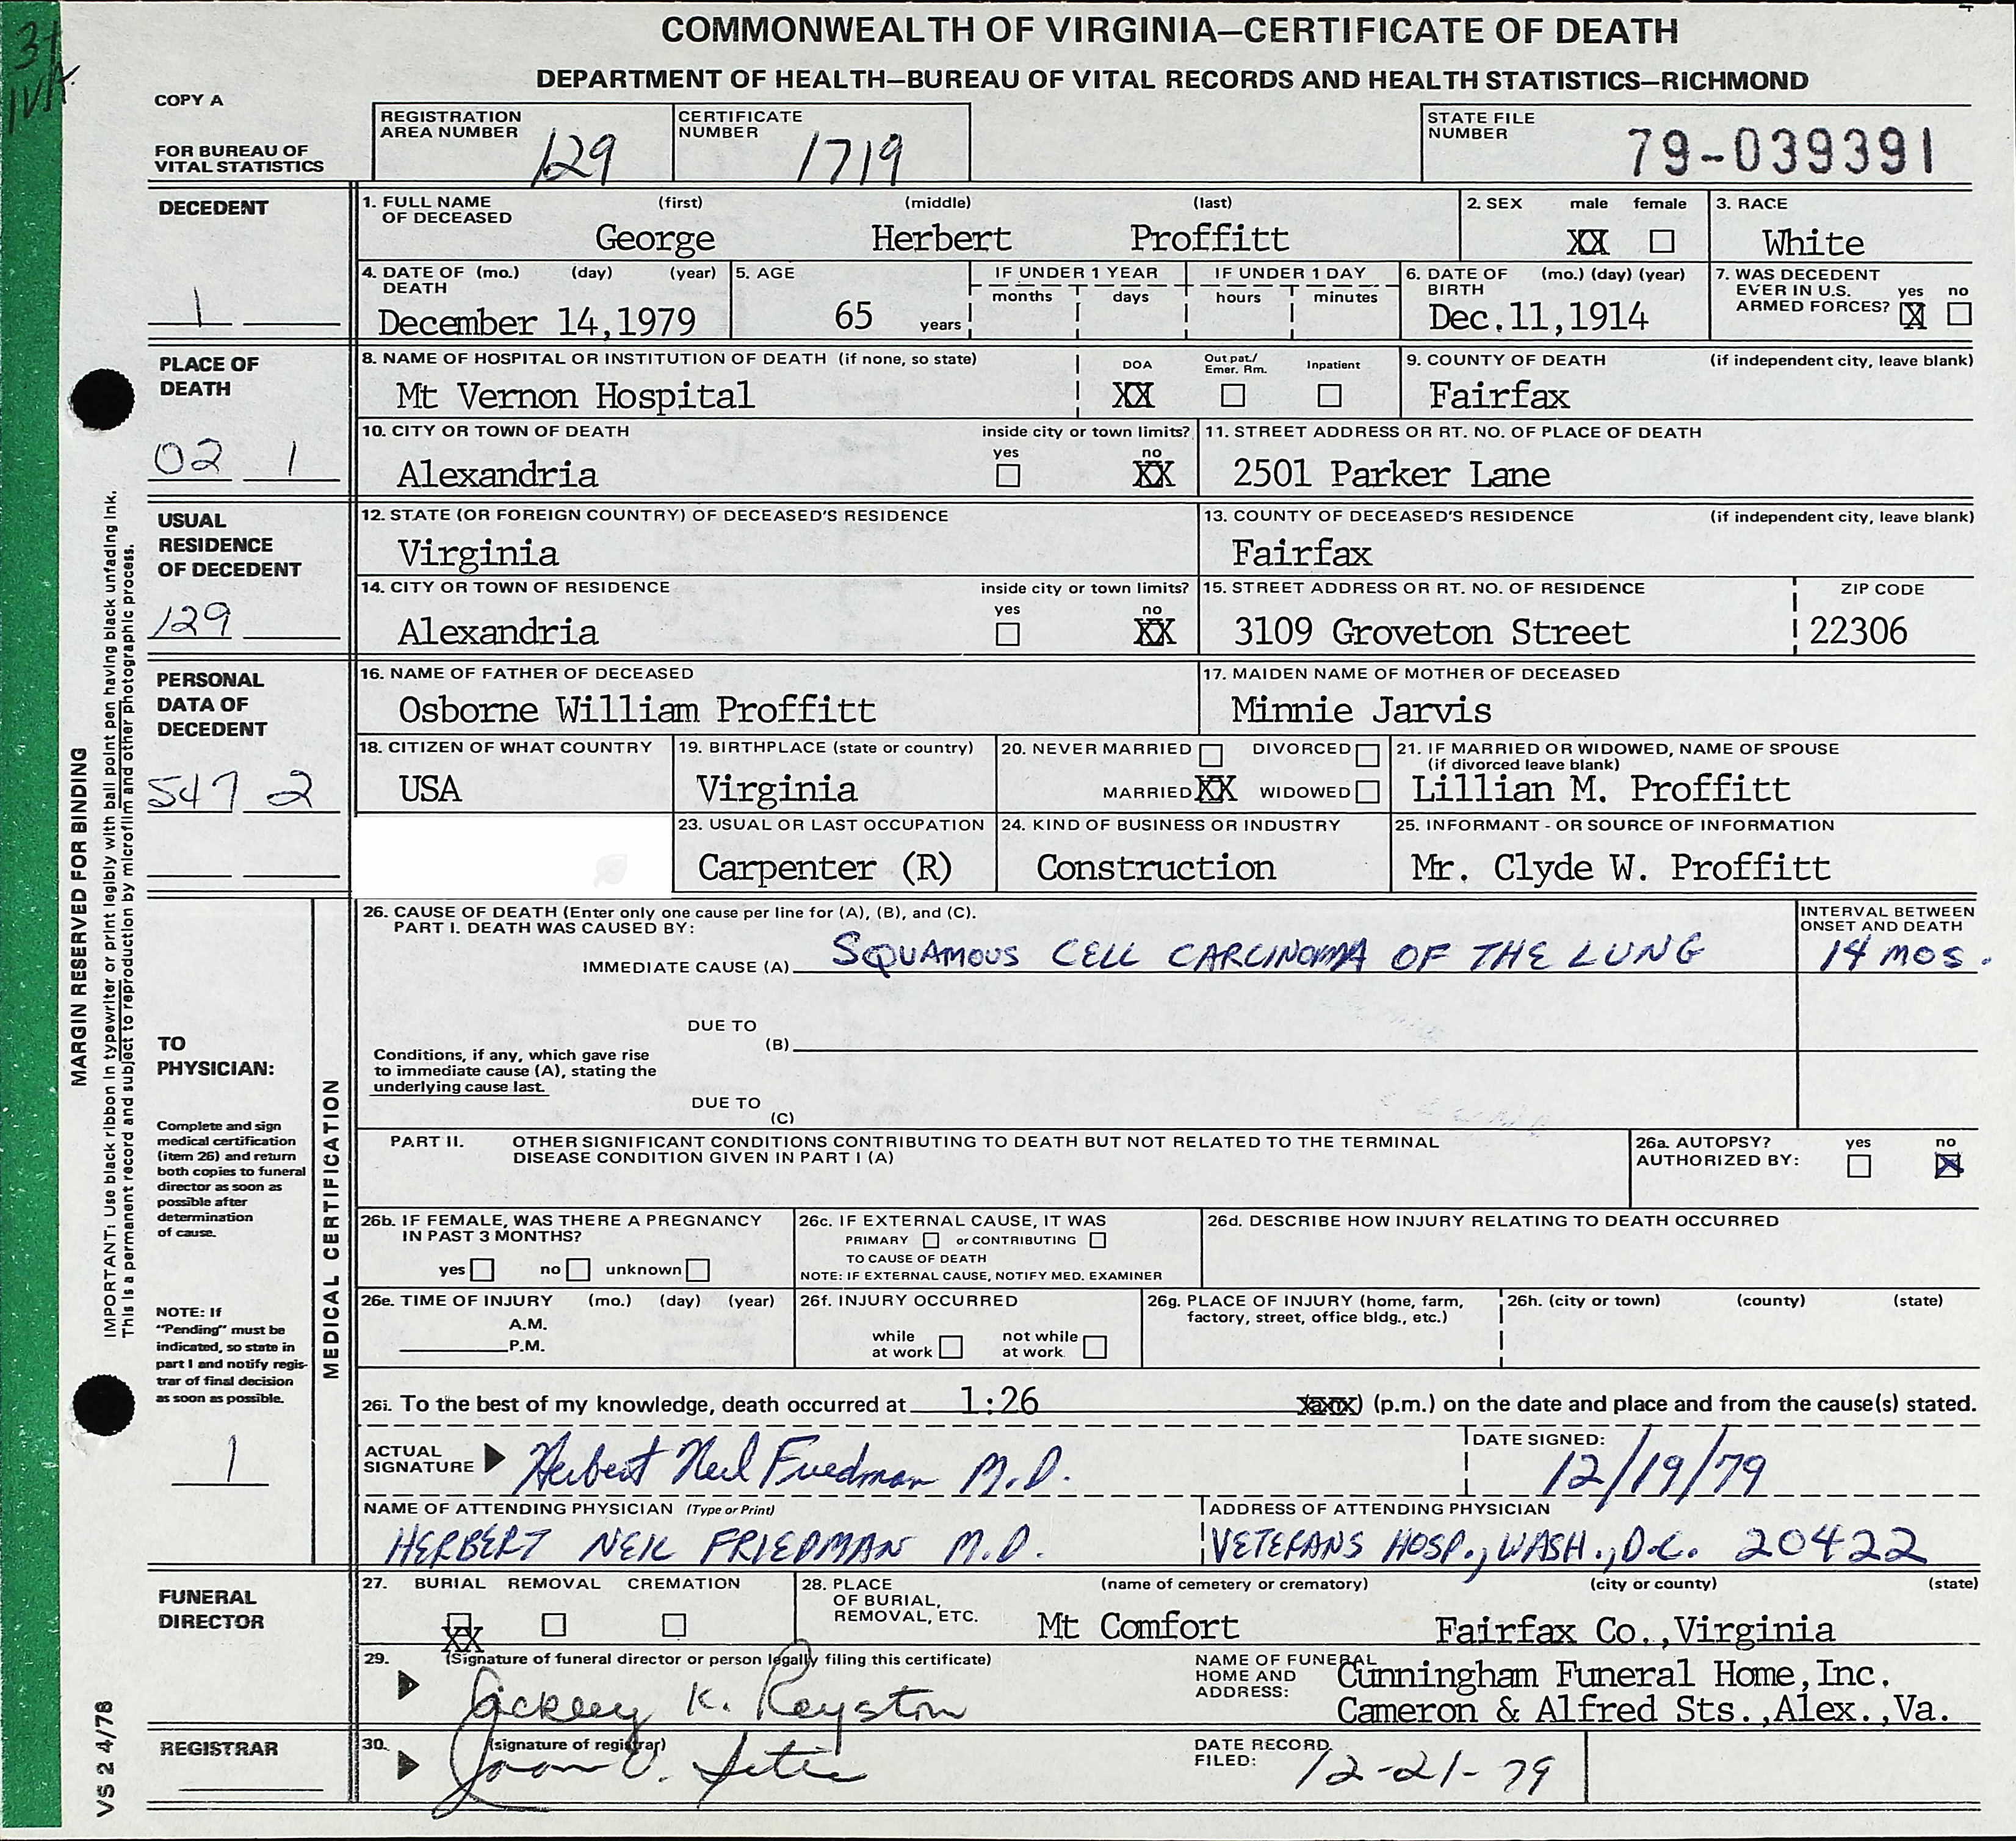 31
IVA
COMMONWEALTH OF VIRGINIA—CERTIFICATE OF DEATH
DEPARTMENT OF HEALTH—BUREAU OF VITAL RECORDS AND HEALTH STATISTICS—RICHMOND
COPY A
FOR BUREAU OF
VITAL STATISTICS
REGISTRATION
AREA NUMBER 129
CERTIFICATE
NUMBER 1719
STATE FILE
NUMBER 79-039391
DECEDENT
1. FULL NAME OF DECEASED (first) (middle) (last)
George Herbert Proffitt
2. SEX male female
XX
3. RACE
White
4. DATE OF DEATH (mo.) (day) (year)
December 14,1979
5. AGE
65 years
IF UNDER 1 YEAR
months days
IF UNDER 1 DAY
hours minutes
6. DATE OF BIRTH (mo.) (day) (year)
Dec.11,1914
7. WAS DECEDENT
EVER IN U.S.
ARMED FORCES? yes no
X
1
PLACE OF
DEATH
8. NAME OF HOSPITAL OR INSTITUTION OF DEATH (if none, so state)
Mt Vernon Hospital
DOA Out pat./ Emer. Rm. Inpatient
XX
9. COUNTY OF DEATH (if independent city, leave blank)
Fairfax
02 1
10. CITY OR TOWN OF DEATH inside city or town limits?
yes no
Alexandria XX
11. STREET ADDRESS OR RT. NO. OF PLACE OF DEATH
2501 Parker Lane
USUAL
RESIDENCE
OF DECEDENT
12. STATE (OR FOREIGN COUNTRY) OF DECEASED'S RESIDENCE
Virginia
13. COUNTY OF DECEASED'S RESIDENCE (if independent city, leave blank)
Fairfax
129
14. CITY OR TOWN OF RESIDENCE inside city or town limits?
yes no
Alexandria XX
15. STREET ADDRESS OR RT. NO. OF RESIDENCE
3109 Groveton Street
ZIP CODE
22306
PERSONAL
DATA OF
DECEDENT
16. NAME OF FATHER OF DECEASED
Osborne William Proffitt
17. MAIDEN NAME OF MOTHER OF DECEASED
Minnie Jarvis
547 2
18. CITIZEN OF WHAT COUNTRY
USA
19. BIRTHPLACE (state or country)
Virginia
20. NEVER MARRIED DIVORCED
MARRIED XX WIDOWED
21. IF MARRIED OR WIDOWED, NAME OF SPOUSE
(if divorced leave blank)
Lillian M. Proffitt
23. USUAL OR LAST OCCUPATION
Carpenter (R)
24. KIND OF BUSINESS OR INDUSTRY
Construction
25. INFORMANT - OR SOURCE OF INFORMATION
Mr. Clyde W. Proffitt
MARGIN RESERVED FOR BINDING
IMPORTANT: Use black ribbon in typewriter or print legibly with ball point pen having black unfading ink.
This is a permanent record and subject to reproduction by microfilm and other photographic process.
VS 2 4/78
TO
PHYSICIAN:
Complete and sign
medical certification
(item 26) and return
both copies to funeral
director as soon as
possible after
determination
of cause.
NOTE: If
"Pending" must be
indicated, so state in
part I and notify regis-
trar of final decision
as soon as possible.
1
MEDICAL CERTIFICATION
26. CAUSE OF DEATH (Enter only one cause per line for (A), (B), and (C).
PART I. DEATH WAS CAUSED BY:
IMMEDIATE CAUSE (A) SQUAMOUS CELL CARCINOMA OF THE LUNG
INTERVAL BETWEEN
ONSET AND DEATH
14 MOS.
DUE TO
(B)
Conditions, if any, which gave rise
to immediate cause (A), stating the
underlying cause last.
DUE TO
(C)
PART II. OTHER SIGNIFICANT CONDITIONS CONTRIBUTING TO DEATH BUT NOT RELATED TO THE TERMINAL
DISEASE CONDITION GIVEN IN PART I (A)
26a. AUTOPSY? yes no
AUTHORIZED BY: X
26b. IF FEMALE, WAS THERE A PREGNANCY
IN PAST 3 MONTHS?
yes no unknown
26c. IF EXTERNAL CAUSE, IT WAS
PRIMARY or CONTRIBUTING
TO CAUSE OF DEATH
NOTE: IF EXTERNAL CAUSE, NOTIFY MED. EXAMINER
26d. DESCRIBE HOW INJURY RELATING TO DEATH OCCURRED
26e. TIME OF INJURY (mo.) (day) (year)
A.M.
P.M.
26f. INJURY OCCURRED
while at work not while at work
26g. PLACE OF INJURY (home, farm,
factory, street, office bldg., etc.)
26h. (city or town) (county) (state)
26i. To the best of my knowledge, death occurred at 1:26 (p.m.) on the date and place and from the cause(s) stated.
ACTUAL
SIGNATURE Herbert Neil Friedman M.D.
DATE SIGNED:
12/19/79
NAME OF ATTENDING PHYSICIAN (Type or Print)
HERBERT NEIL FRIEDMAN M.D.
ADDRESS OF ATTENDING PHYSICIAN
VETERANS HOSP., WASH., D.C. 20422
FUNERAL
DIRECTOR
27. BURIAL REMOVAL CREMATION
XX
28. PLACE
OF BURIAL,
REMOVAL, ETC.
(name of cemetery or crematory) (city or county) (state)
Mt Comfort Fairfax Co.,Virginia
29. (Signature of funeral director or person legally filing this certificate)
K. Reyston
NAME OF FUNERAL
HOME AND
ADDRESS:
Cunningham Funeral Home,Inc.
Cameron & Alfred Sts.,Alex.,Va.
REGISTRAR
30. (signature of registrar)
DATE RECORD
FILED: 12-21-79